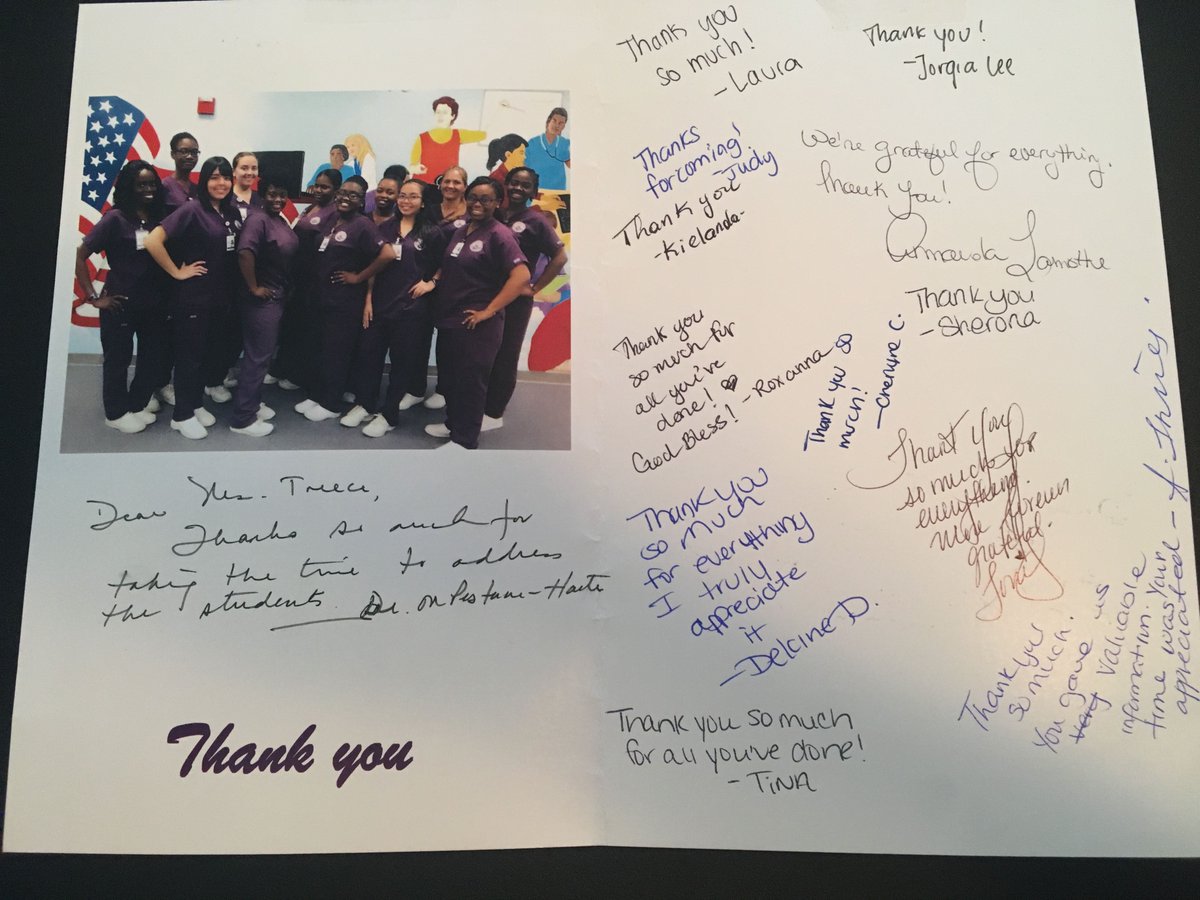 Dear Ms. Treece,
Thanks so much for
taking the time to address
the students. Dr.
Thank you
Thank you
so much!
- Laura
Thank you!
- Jorgia Lee
Thanks
for coming!
- Judy
Thank you
- Kielanda -
We're grateful for everything.
Thank you!
Lamothe
Thank you
- Sherona
Thank you
so much for
all you've
done! ♥
God Bless! - Roxanna
Thank you so
much!
Thank you
so much for
everything
grateful.
Thank you
so much
for everything
I truly
appreciate
it
- Delcine D.
Thank you
so much.
You gave us
valuable
information. Your
time was
appreciated -
Thank you so much
for all you've done!
- TiNA